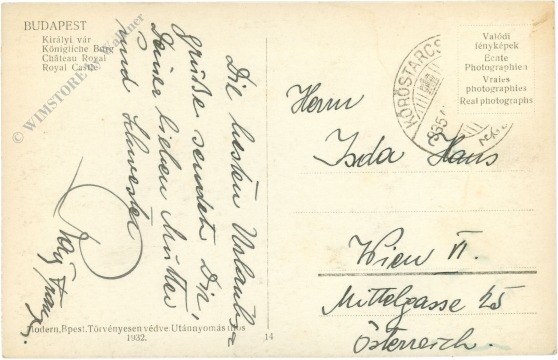 BUDAPEST
Királyi vár
Königliche Burg
Château Royal
Royal Castle
© WIMSTORE
Die besten Urlaubs
grüße sendet Dir,
Deine lieben Mutter
und Schwester
Modern, Bpest. Törvényesen védve. Utánnyomás tilos
1932.
14
KŐRÖSTARCS
Valódi
fényképek
Echte
Photographien
Vraies
photographies
Real photographs
Herrn
Hans
Wien VI.
Mittelgasse 25
Österreich.